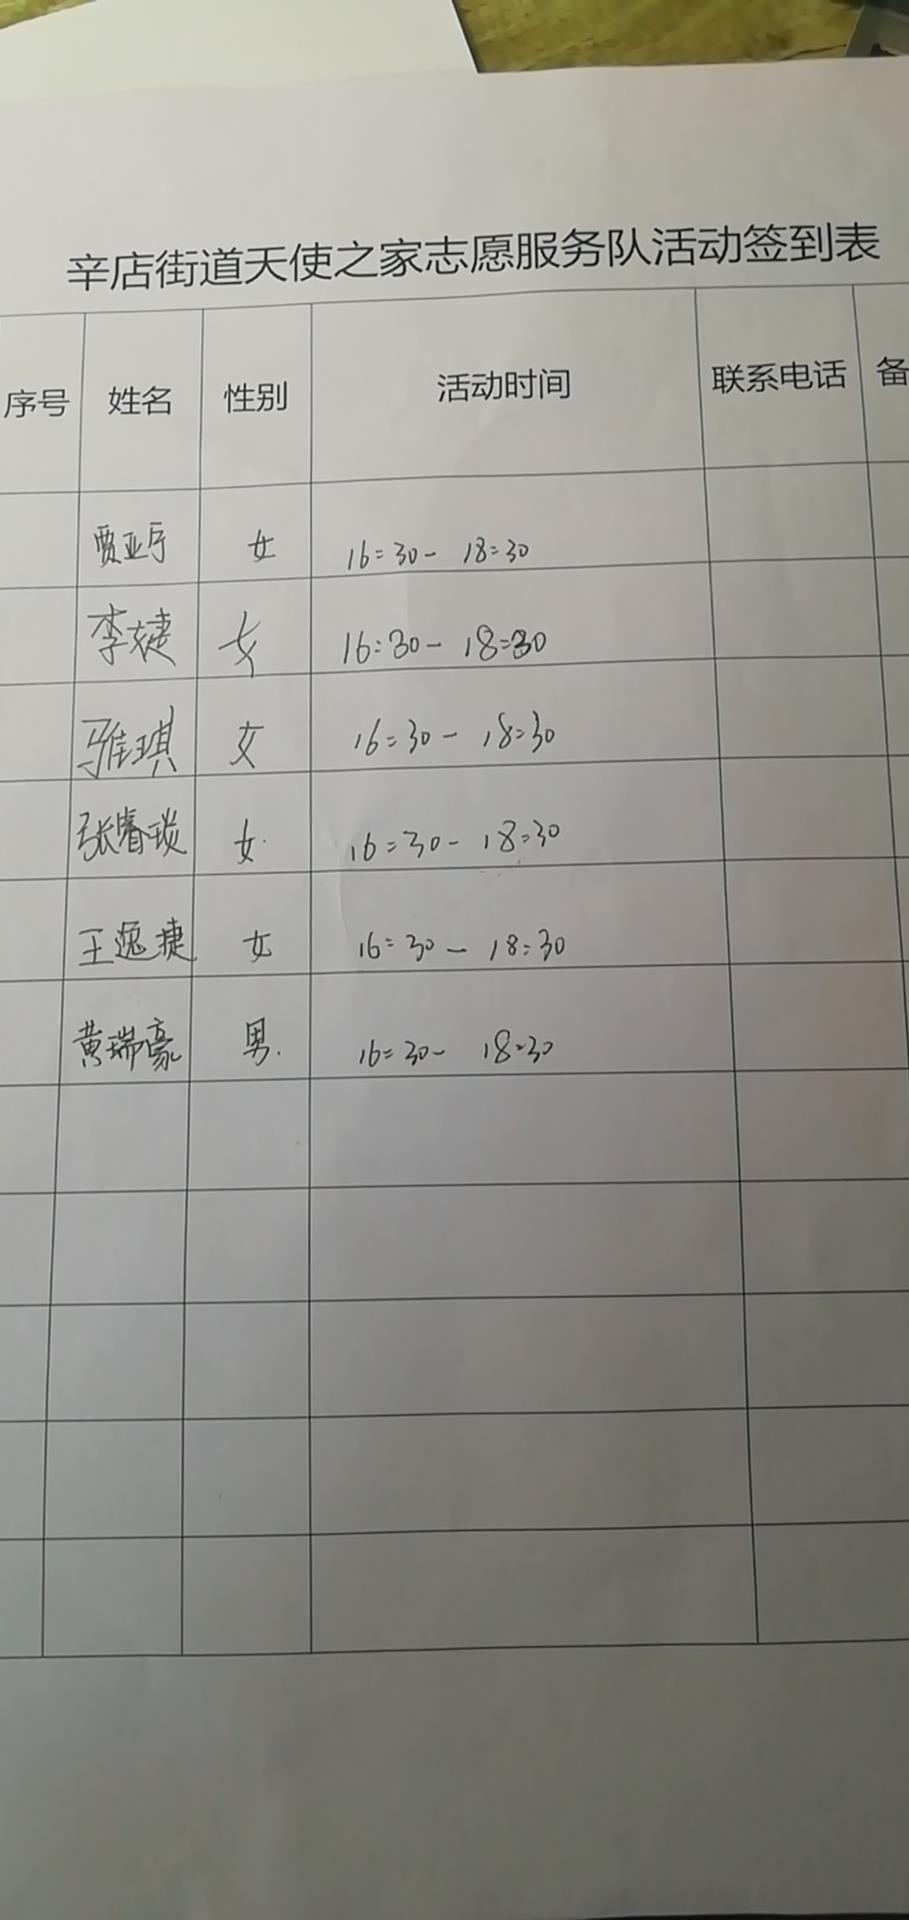 辛店街道天使之家志愿服务队活动签到表
序号 姓名 性别 活动时间 联系电话 备
贾亚宁 女 16:30- 18:30
李婕 女 16:30- 18:30
马雅琪 女 16:30- 18:30
张睿琰 女 16:30- 18:30
王逸捷 女 16:30- 18:30
黄瑞豪 男. 16:30- 18:30